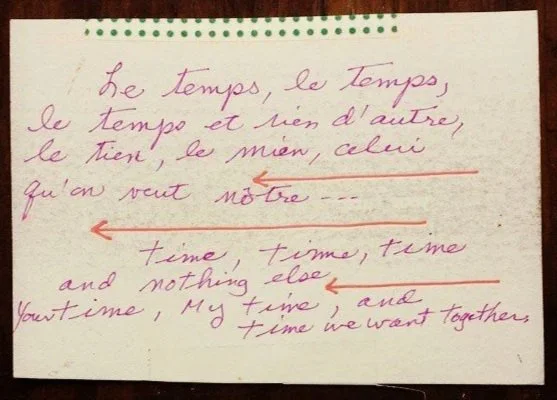 Le temps, le temps,
le temps et rien d'autre,
le tien, le mien, celui
qu'on veut nôtre ---
time, time, time
and nothing else
Your time, My time, and
time we want together.